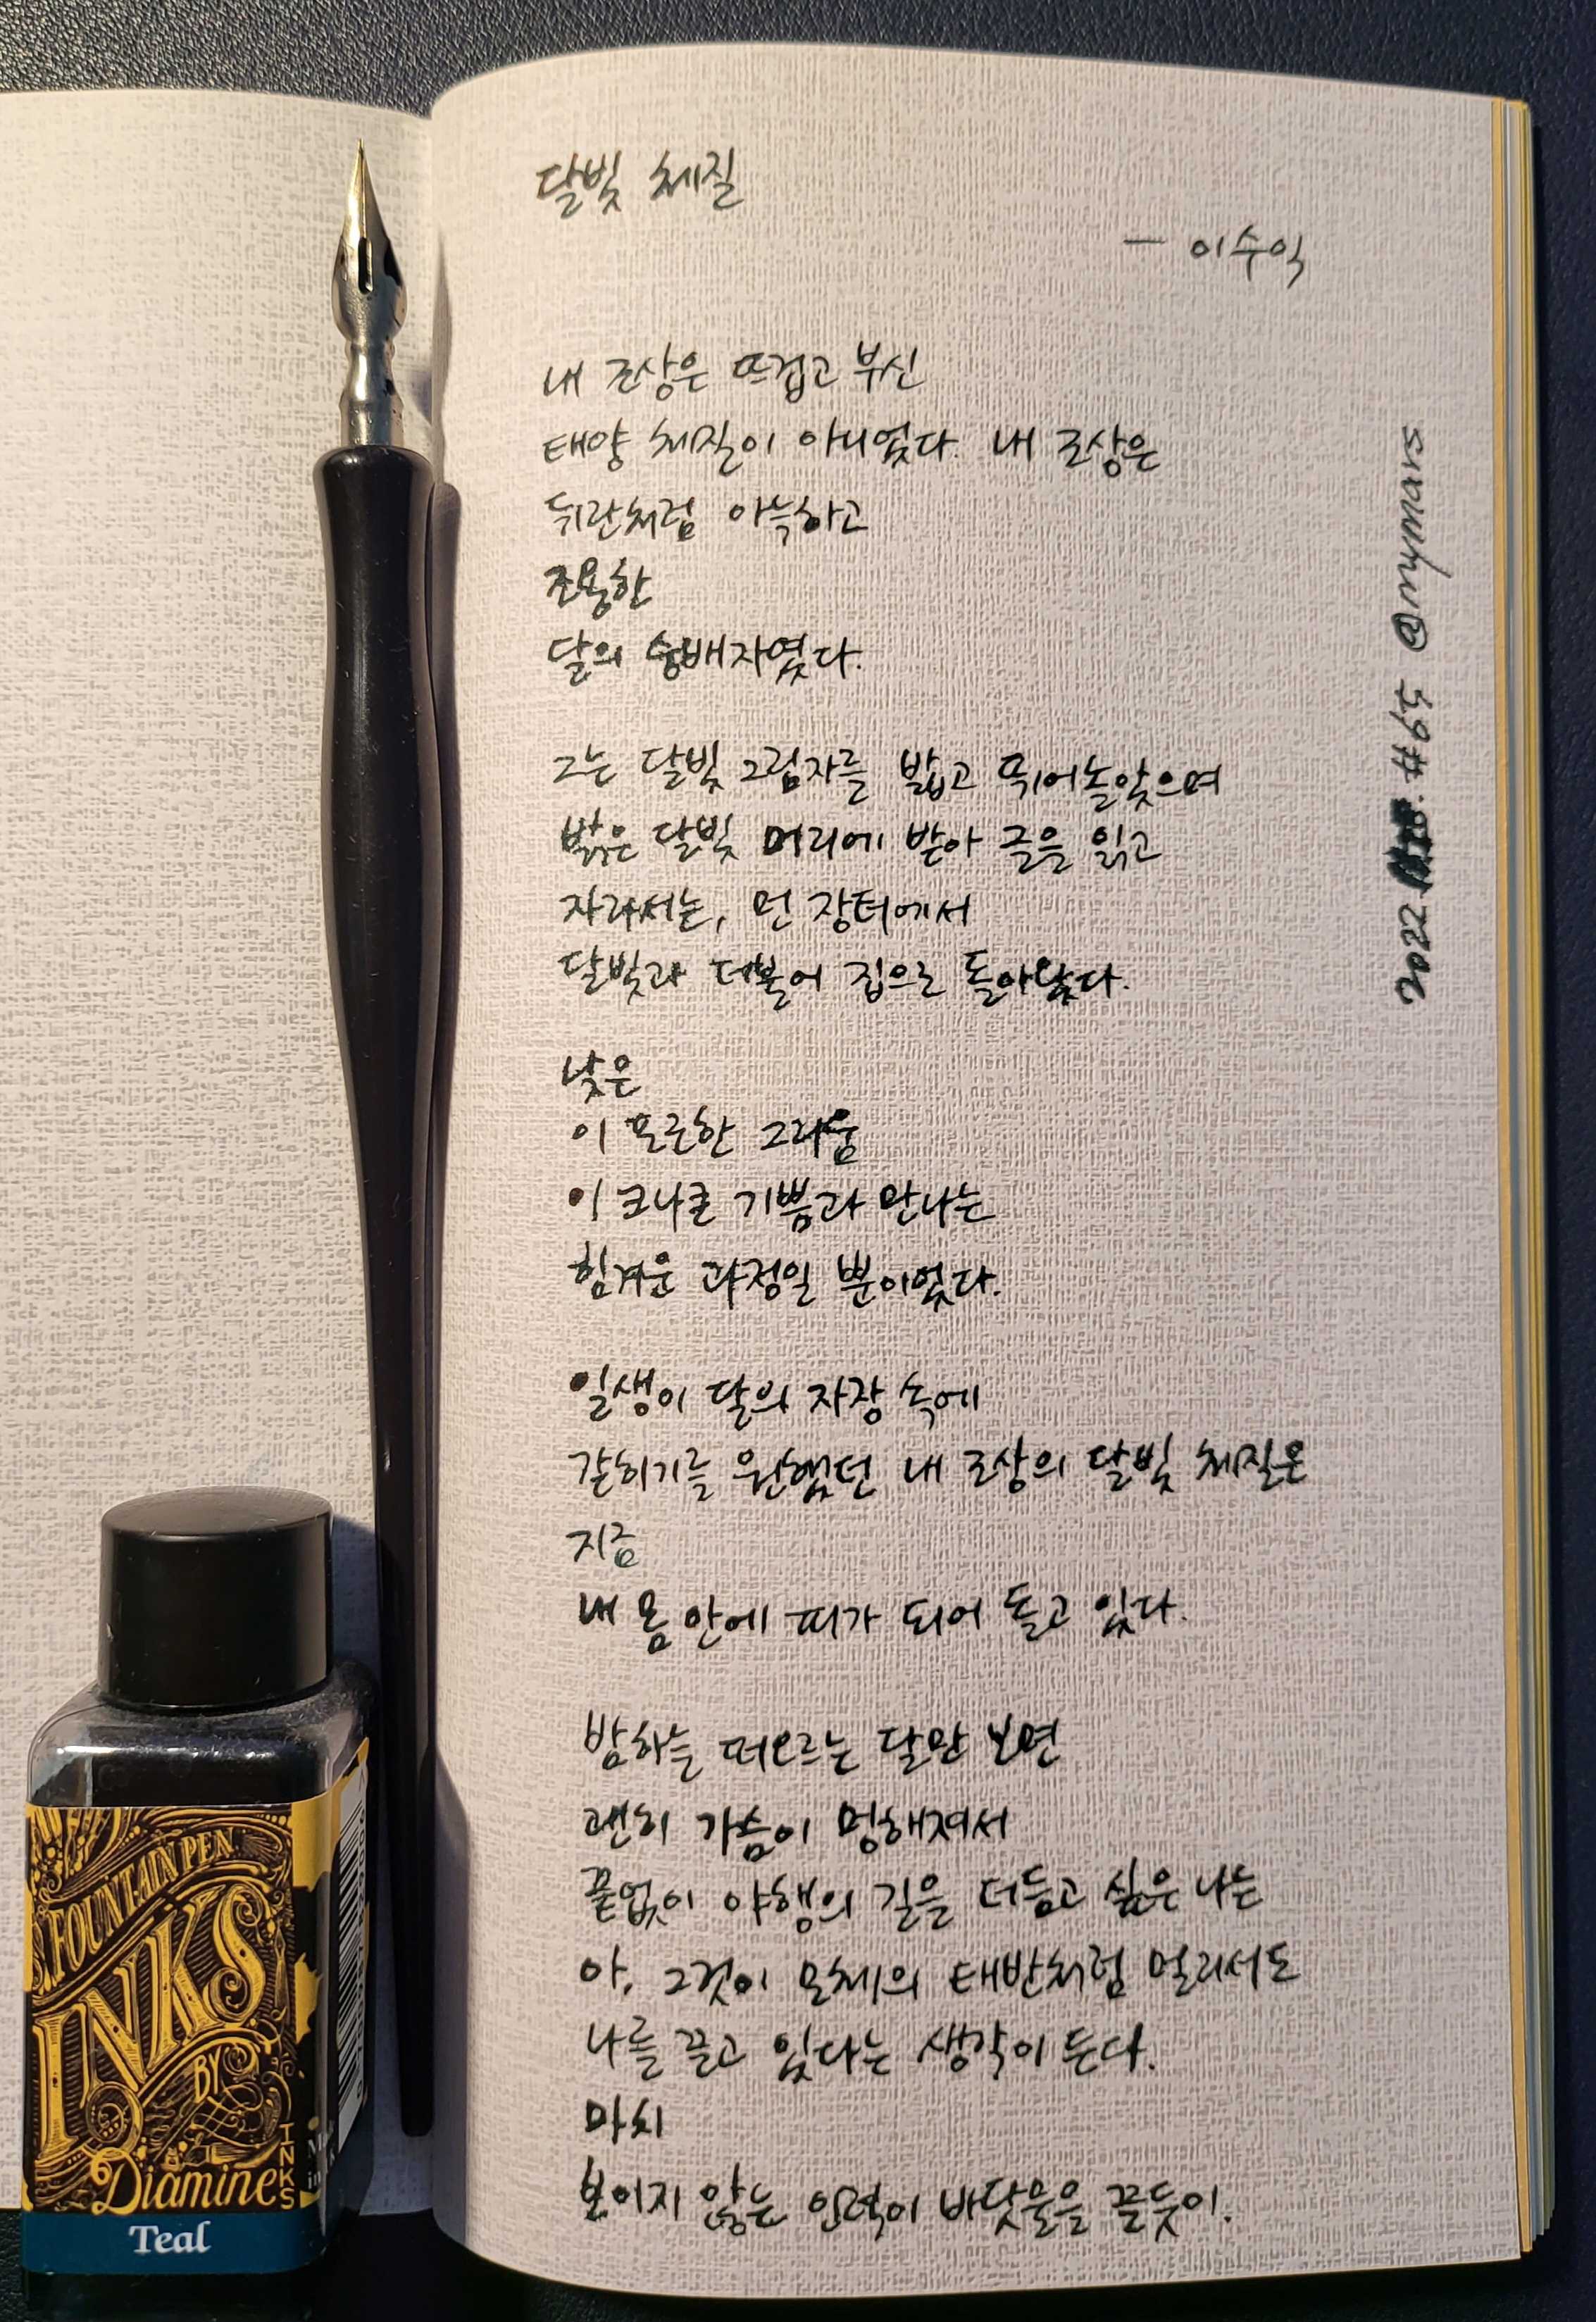 달빛 체질
— 이수익
내 조상은 뜨겁고 부신
태양 체질이 아니었다. 내 조상은
뒤란처럼 아늑하고
조용한
달의 숭배자였다.
그는 달빛 그림자를 밟고 뛰어놀았으며
밝은 달빛 머리에 받아 글을 읽고
자라서는, 먼 장터에서
달빛과 더불어 집으로 돌아왔다.
낮은
이 포근한 그리움
이 크나큰 기쁨과 만나는
힘겨운 과정일 뿐이었다.
일생이 달의 자장 속에
갇히기를 원했던 내 조상의 달빛 체질은
지금
내 몸 안에 피가 되어 돌고 있다.
밤하늘 떠오르는 달만 보면
괜히 가슴이 멍해져서
끝없이 야행의 길을 더듬고 싶은 나는
아, 그것이 모체의 태반처럼 멀리서도
나를 끌고 있다는 생각이 든다.
마치
보이지 않는 인력이 바닷물을 끌듯이.
2022 #59 @mymars
FOUNTAIN PEN
INKS
BY
Diamine
INKS
Teal